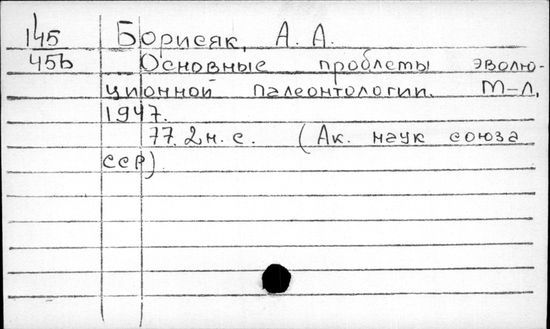 145 Борисяк, А. А.
45ь Основные проблемы эволю-
ционной палеонтологии. М-Л,
1947.
77. 2н. с. (Ак. наук союза
ССР)